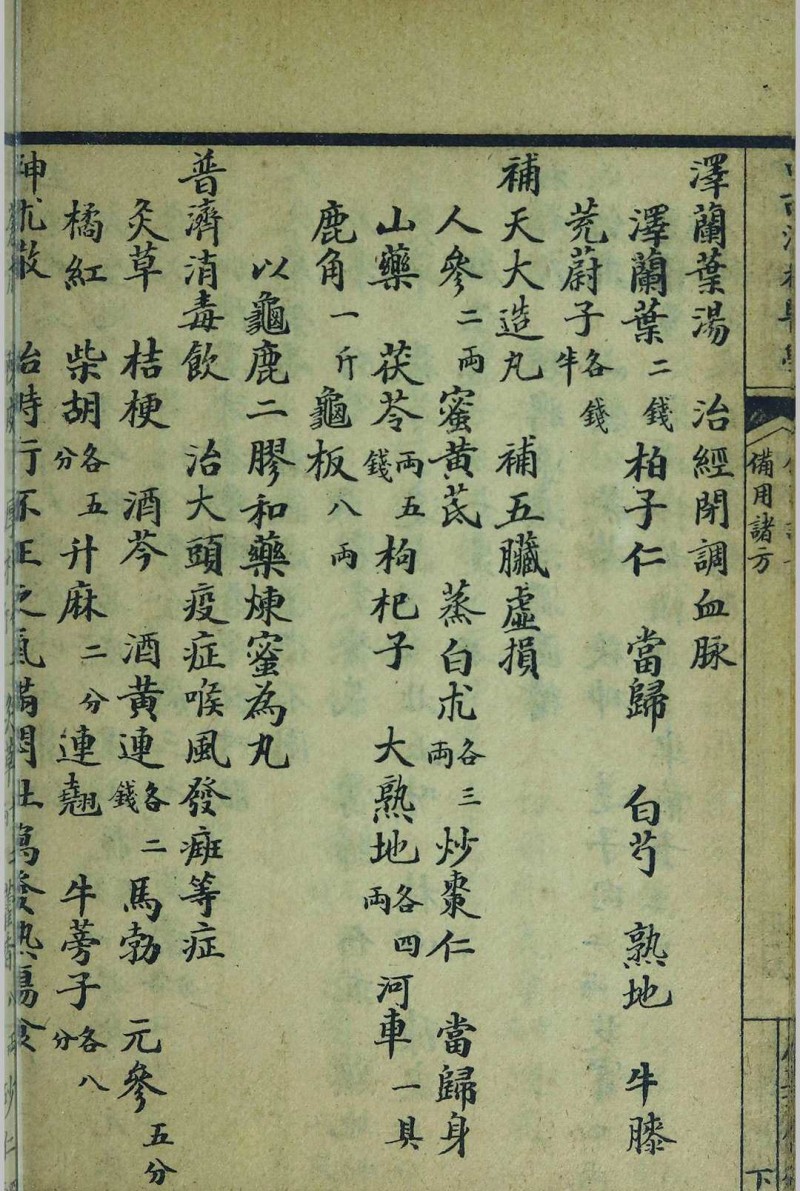 備用諸方
下
澤蘭葉湯　治經閉調血脉
澤蘭葉二錢柏子仁　當歸　白芍　熟地　牛膝
茺蔚子各錢半
補天大造丸　補五臟虛損
人參二兩蜜黃芪　蒸白朮各三兩炒棗仁　當歸身
山藥　茯苓兩五錢枸杞子　大熟地各四兩河車一具
鹿角一斤龜板八兩
以龜鹿二膠和藥煉蜜為丸
普濟消毒飲　治大頭疫症喉風發癍等症
炙草　桔梗　酒芩　酒黃連各二錢馬勃　元參五分
橘紅　柴胡各五分升麻二分連翹　牛蒡子各八分
神朮散　治時行不正之氣滿悶吐瀉發熱傷食